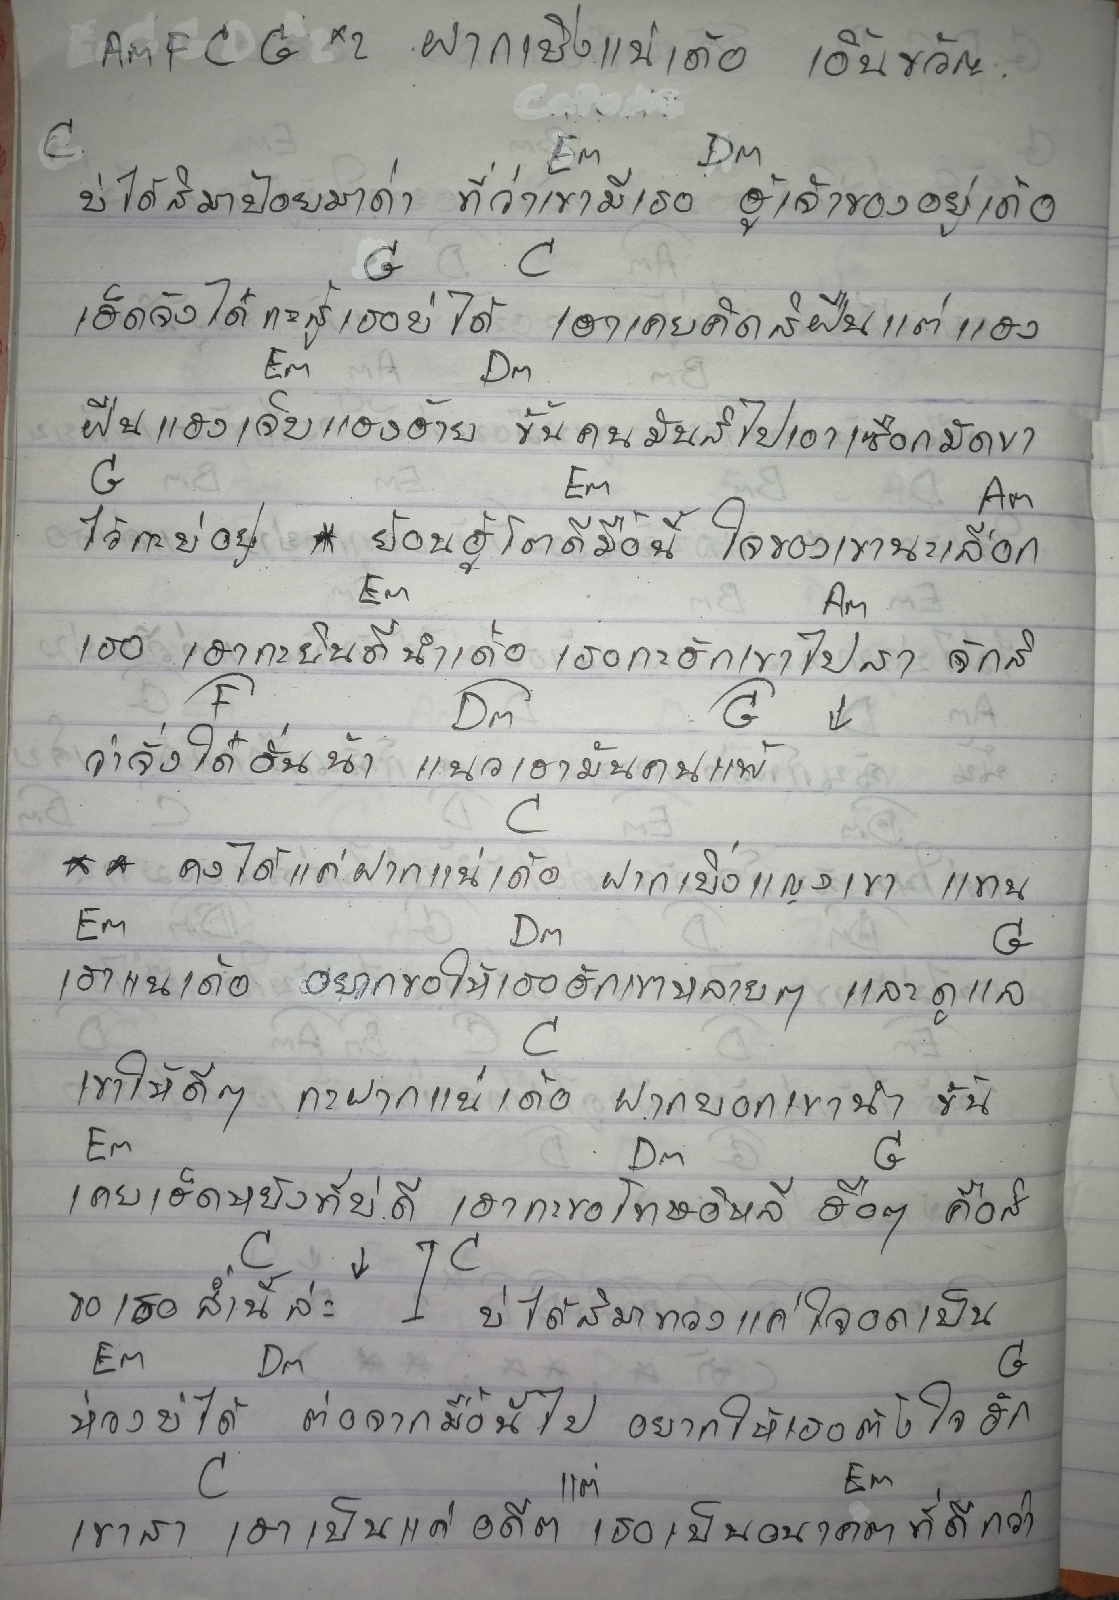 Am F C G *2 ฝากเบิ่งแน่เด้อ เอิ้นขวัญ.
C Em Dm
บ่ได้สิมาป้อยมาด่า ที่ว่าเขามีเธอ ฮู้เจ้าของอยู่เด้อ
G C
เฮ็ดจังได๋กะสู้เธอบ่ได้ เฮาเคยคิดสิฝืนแต่แฮง
Em Dm
ฝืนแฮงเจ็บแฮงฮ้าย ขั้นคนมันสิไปเอาเชือกมัดขา
G Em Am
ไว้กะบ่อยู่ * ย้อนฮู้โตดีมื้อนี้ ใจของเขานะเลือก
Em Am
เธอ เฮากะยินดีนำเด้อ เธอกะฮักเขาไปสา จักสิ
F Dm G ↓
ว่าจั่งใด๋ฮั่นน้า แนวเฮามันคนแพ้
C
** คงได้แค่ฝากแน่เด้อ ฝากเบิ่งแญงเขา แทน
Em Dm G
เฮาแนเด้อ อยากขอให้เธอฮักเขาหลายๆ และดูแล
C
เขาให้ดีๆ กะฝากแน่เด้อ ฝากบอกเขานำ ขั้น
Em Dm G
เคยเฮ็ดหยังที่บ่ดี เฮากะขอโทษอีหลี ฮือๆ คือสิ
C ↓ C
ขอเธอส่ำนี้ล่ะ บ่ได้สิมาทวงแค่ใจอดเป็น
Em Dm G
ห่วงบ่ได้ ต่อจากมื้อนี้ไป อยากให้เธอตั้งใจฮัก
C แต่ Em
เขาสา เฮาเป็นแค่อดีต เธอเป็นอนาคตที่ดีกว่า